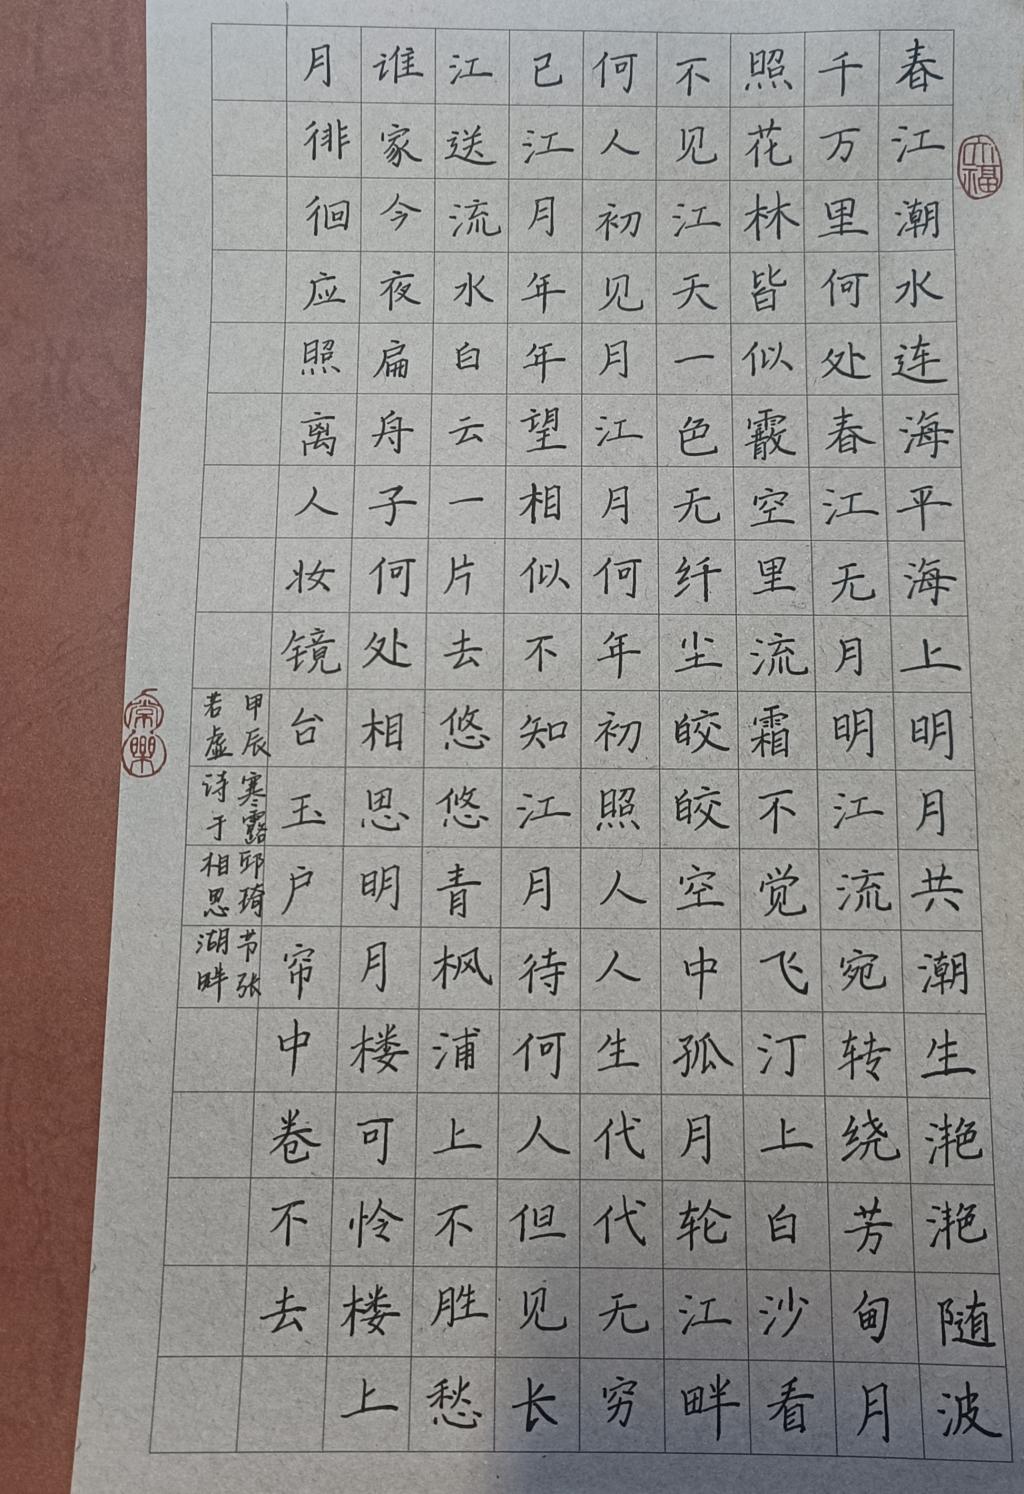 春江潮水连海平海上明月共潮生滟滟随波
千万里何处春江无月明江流宛转绕芳甸月
照花林皆似霰空里流霜不觉飞汀上白沙看
不见江天一色无纤尘皎皎空中孤月轮江畔
何人初见月江月何年初照人人生代代无穷
已江月年年望相似不知江月待何人但见长
江送流水白云一片去悠悠青枫浦上不胜愁
谁家今夜扁舟子何处相思明月楼可怜楼上
月徘徊应照离人妆镜台玉户帘中卷不去
甲辰寒露邱琦节张
若虚诗于相思湖畔
常樂